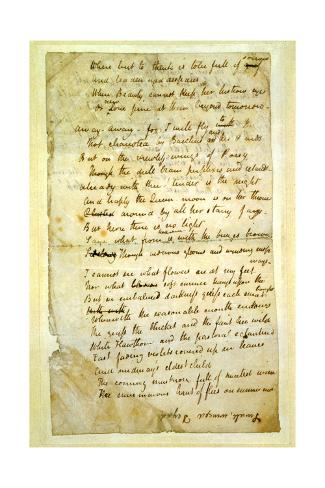 Where but to think is to be full of sorrow
And leaden eyed despairs
Where Beauty cannot keep her lustrous eyes
Or new Love pine at them beyond tomorrow
Away away for I will fly to thee
Not charioted by Bacchus and his pards
But on the viewless wings of Poesy
Though the dull brain perplexes and retards
Already with thee tender is the night
And haply the Queen moon is on her throne
Clustered around by all her starry fays
But here there is no light
Save what from heaven is with the breezes blown
Through verdurous glooms and winding mossy ways
I cannot see what flowers are at my feet
Nor what soft incense hangs upon the boughs
But in embalmed darkness guess each sweet
Wherewith the seasonable month endows
The grass the thicket and the fruit tree wild
White Hawthorn and the pastoral eglantine
Fast fading violets covered up in leaves
And midmays eldest child
The coming muskrose full of dewy wine
The murmurous haunt of flies on summer eves